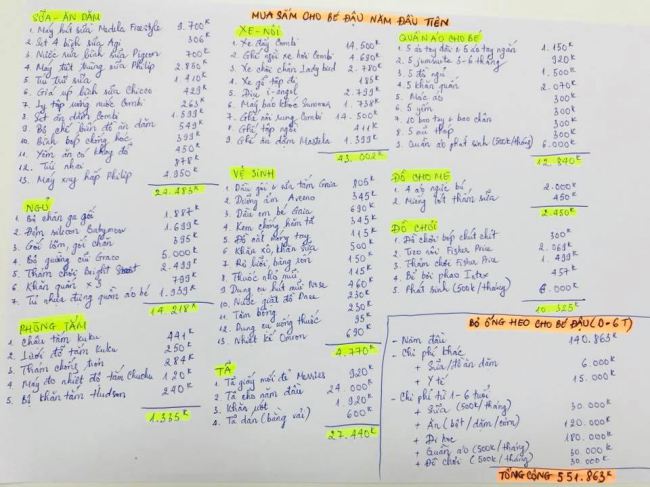 MUA SẮM CHO BÉ ĐẬU NĂM ĐẦU TIÊN
SỮA - ĂN DẶM
1. Máy hút sữa Medela Freestyle 9.700K
2. Set 4 bịch sữa Agi 306K
3. Nước rửa bình sữa Pigeon 700K
4. Máy tiệt trùng sữa Philip 2.850K
5. Túi trữ sữa 1.410K
6. Giá úp bình sữa Chicco 429K
7. Ly tập uống nước Combi 263K
8. Set ăn dặm Combi 1.599K
9. Bộ chế biến đồ ăn dặm 549K
10. Bình bóp chống hóc 399K
11. Yếm ăn cơ không đổ 450K
12. Túi nhai 878K
13. Máy xay hấp Philip 4.950K
24.483K
NGỦ
1. Bộ chăn ga gối 1.887K
2. Đệm silicon Babymoov 1.699K
3. Gối lõm, gối chăn 395K
4. Bộ quây cũi Graco 5.000K
5. Thảm chơi Bright 2.499K
6. Khăn quấn x 3 799K
7. Tủ nhựa đựng quần áo bé 1.939K
14.218K
PHÒNG TẮM
1. Chậu tắm Kuku 441K
2. Lưới đỡ tắm Kuku 250K
3. Thảm chống trơn 284K
4. Máy đo nhiệt độ tắm Chuchu 120K
5. Bộ khăn tắm Hudson 240K
1.335K
XE - NÔI
1. Xe đẩy Combi 14.500K
2. Ghế ngồi xe hơi Combi 4.690K
3. Xe chòi chân Lady bird 2.780K
4. Xe gỗ tập đi 185K
5. Địu i-angel 2.799K
6. Máy báo khóc Summer 1.738K
7. Ghế nôi rung Combi 14.500K
8. Ghế tập ngồi 411K
9. Ghế ăn dặm Mastela 1.399K
43.002K
VỆ SINH
1. Dầu gội & sữa tắm Gaia 805K
2. Dưỡng ẩm Aveno 345K
3. Dầu em bé Gaia 690K
4. Kem chống hăm tã 345K
5. Đồ cắt móng tay 115K
6. Khăn xô, khăn sữa 500K
7. Rơ lưỡi, băng rốn 150K
8. Thuốc nhỏ mũi 115K
9. Dụng cụ hút mũi Nose 460K
10. Nước giặt đồ Dnee 230K
11. Tăm bông 230K
12. Dụng cụ uống thuốc 95K
13. Nhiệt kế Omron 690K
4.770K
TÃ
1. Tã giấy mới đẻ Merries 920K
2. Tã cho năm đầu 24.000K
3. Khăn ướt 1.920K
4. Tã dán (bằng vải) 600K
27.440K
QUẦN ÁO CHO BÉ
1. 5 áo tay dài & 5 áo tay ngắn 1.150K
2. 5 jumsuite 3-6 tháng 920K
3. 5 đồ ngủ 1.500K
4. 5 khăn quấn 2.070K
5. Móc áo 300K
6. 5 yếm 300K
7. 10 bao tay & bao chân 300K
8. 5 mũ thóp 300K
9. Quần áo phát sinh (500K/tháng) 6.000K
12.840K
ĐỒ CHO MẸ
1. 4 áo ngực bú 2.000K
2. Miếng lót thấm sữa 450K
2.450K
ĐỒ CHƠI
1. Đồ chơi bóp chút chít 300K
2. Treo nôi Fisher Price 2.069K
3. Thảm chơi Fisher Price 1.499K
4. Bể bơi phao Intex 457K
5. Phát sinh (500K/tháng) 6.000K
10.325K
BỎ ỐNG HEO CHO BÉ ĐẬU (0-6T)
- Năm đầu 140.863K
- Chi phí khác
+ Sữa/Ăn dặm 6.000K
+ Y tế 15.000K
- Chi phí từ 1-6 tuổi
+ Sữa (500K/tháng) 30.000K
+ Ăn (bột/dặm/cơm) 120.000K
+ Đi học 180.000K
+ Quần áo (500K/tháng) 30.000K
+ Đồ chơi (500K/tháng) 30.000K
TỔNG CỘNG 551.863K